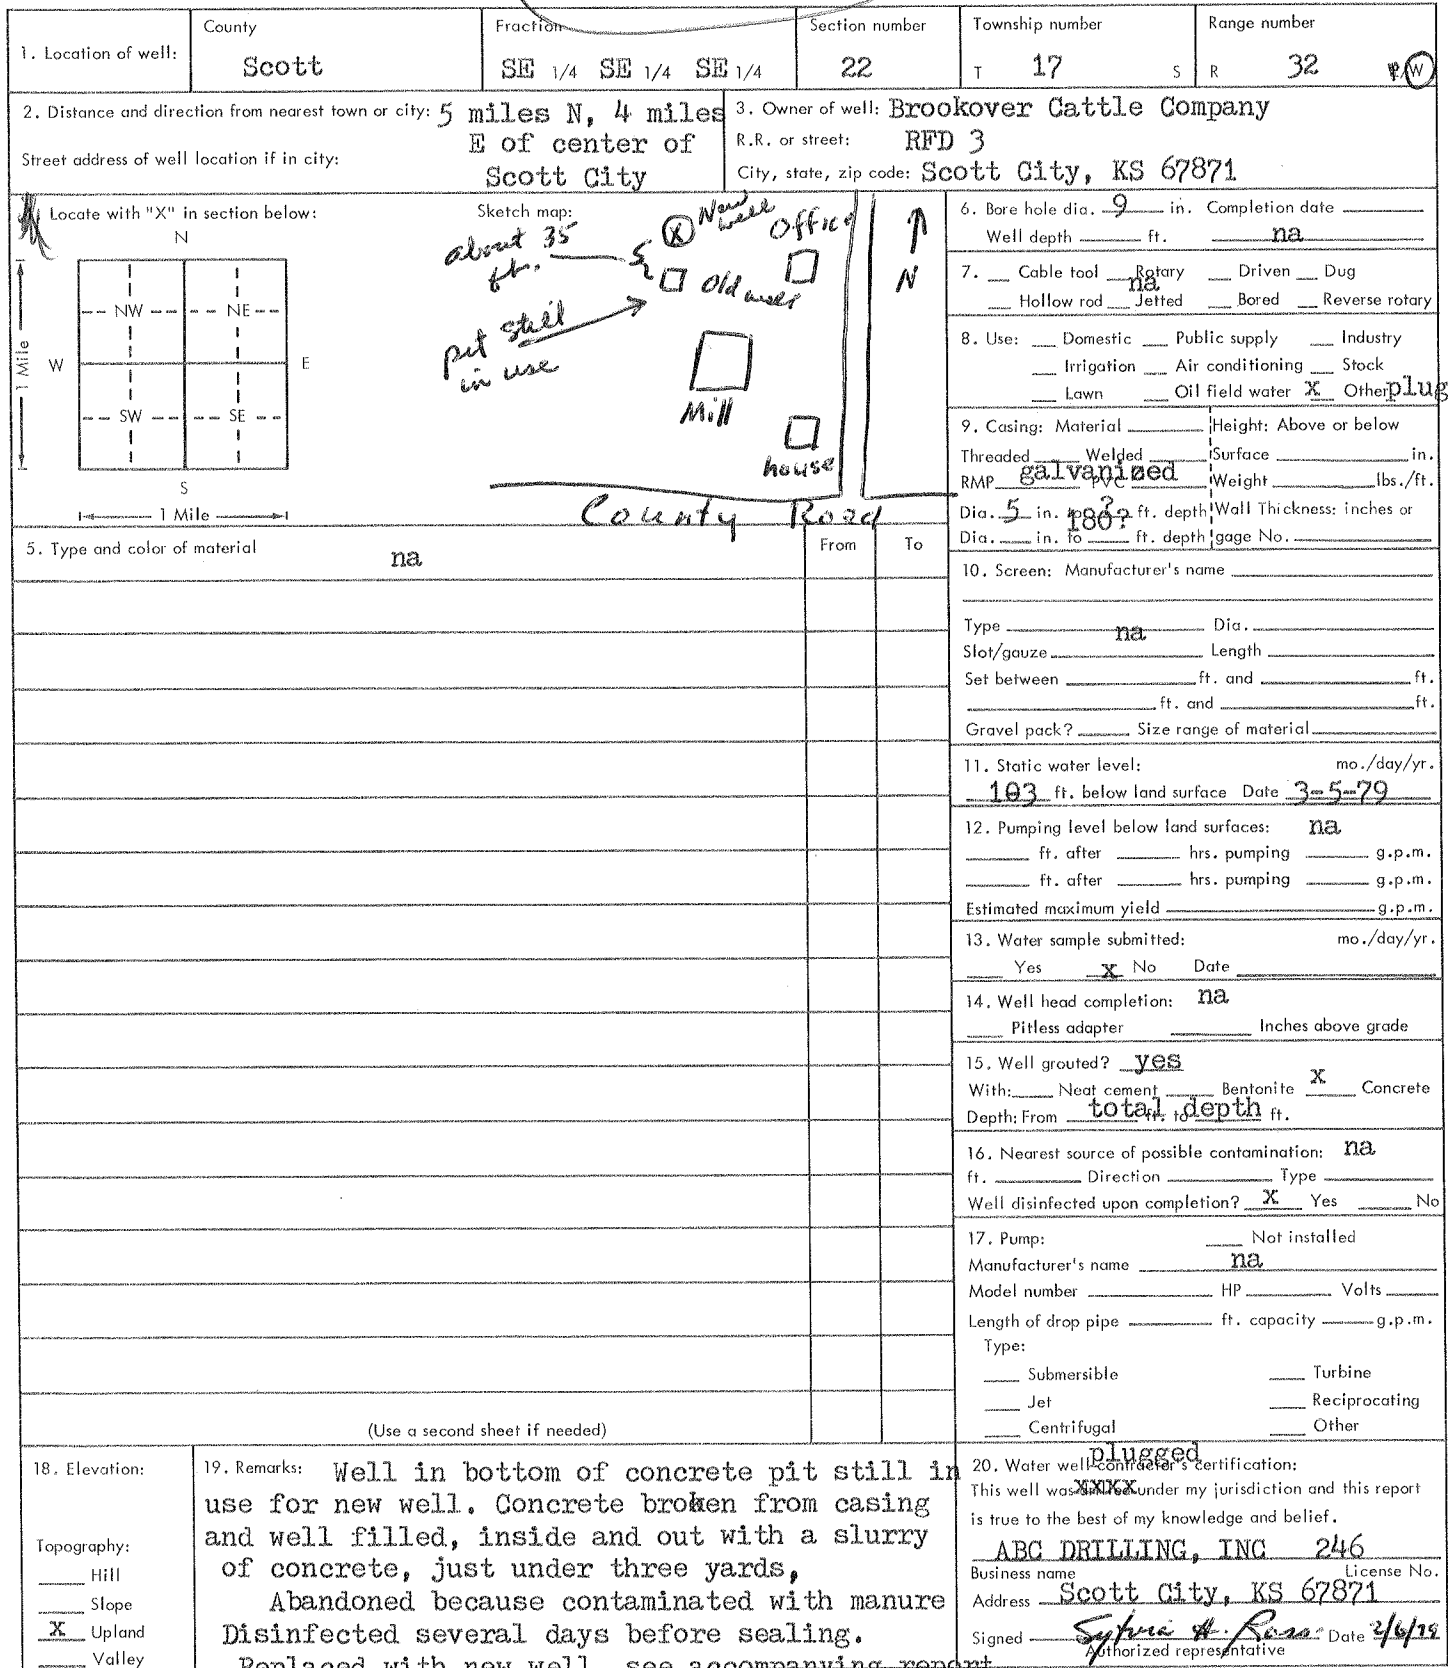 1. Location of well: County Scott Fraction SE 1/4 SE 1/4 SE 1/4 Section number 22 Township number T 17 S Range number R 32 E/W
2. Distance and direction from nearest town or city: 5 miles N, 4 miles
E of center of
Street address of well location if in city: Scott City
3. Owner of well: Brookover Cattle Company
R.R. or street: RFD 3
City, state, zip code: Scott City, KS 67871
Locate with "X" in section below:
N
NW NE
W E
1 Mile
SW SE
S
1 Mile
Sketch map:
about 35
ft.
New
well
X
Office
Old well
N
pit still
in use
Mill
house
County Road
5. Type and color of material na From To
(Use a second sheet if needed)
6. Bore hole dia. 9 in. Completion date
Well depth ft. na
7. Cable tool Rotary Driven Dug
na
Hollow rod Jetted Bored Reverse rotary
8. Use: Domestic Public supply Industry
Irrigation Air conditioning Stock
Lawn Oil field water X Other plug
9. Casing: Material Height: Above or below
Threaded Welded Surface in.
RMP galvanized PVC Weight lbs./ft.
Dia. 5 in. to ? ft. depth Wall Thickness: inches or
180?
Dia. in. to ft. depth gage No.
10. Screen: Manufacturer's name
Type na Dia.
Slot/gauze Length
Set between ft. and ft.
ft. and ft.
Gravel pack? Size range of material
11. Static water level: mo./day/yr.
103 ft. below land surface Date 3-5-79
12. Pumping level below land surfaces: na
ft. after hrs. pumping g.p.m.
ft. after hrs. pumping g.p.m.
Estimated maximum yield g.p.m.
13. Water sample submitted: mo./day/yr.
Yes x No Date
14. Well head completion: na
Pitless adapter Inches above grade
15. Well grouted? yes
With: Neat cement Bentonite X Concrete
Depth: From total ft. to depth ft.
16. Nearest source of possible contamination: na
ft. Direction Type
Well disinfected upon completion? X Yes No
17. Pump: Not installed
Manufacturer's name na
Model number HP Volts
Length of drop pipe ft. capacity g.p.m.
Type:
Submersible Turbine
Jet Reciprocating
Centrifugal Other
18. Elevation:
Topography:
Hill
Slope
X Upland
Valley
19. Remarks: Well in bottom of concrete pit still in
use for new well. Concrete broken from casing
and well filled, inside and out with a slurry
of concrete, just under three yards,
Abandoned because contaminated with manure
Disinfected several days before sealing.
Replaced with new well, see accompanying report
plugged
20. Water well contractor's certification:
This well was xxxx under my jurisdiction and this report
is true to the best of my knowledge and belief.
ABC DRILLING, INC 246
Business name License No.
Address Scott City, KS 67871
Signed Sylvia H. Ross Date
Authorized representative